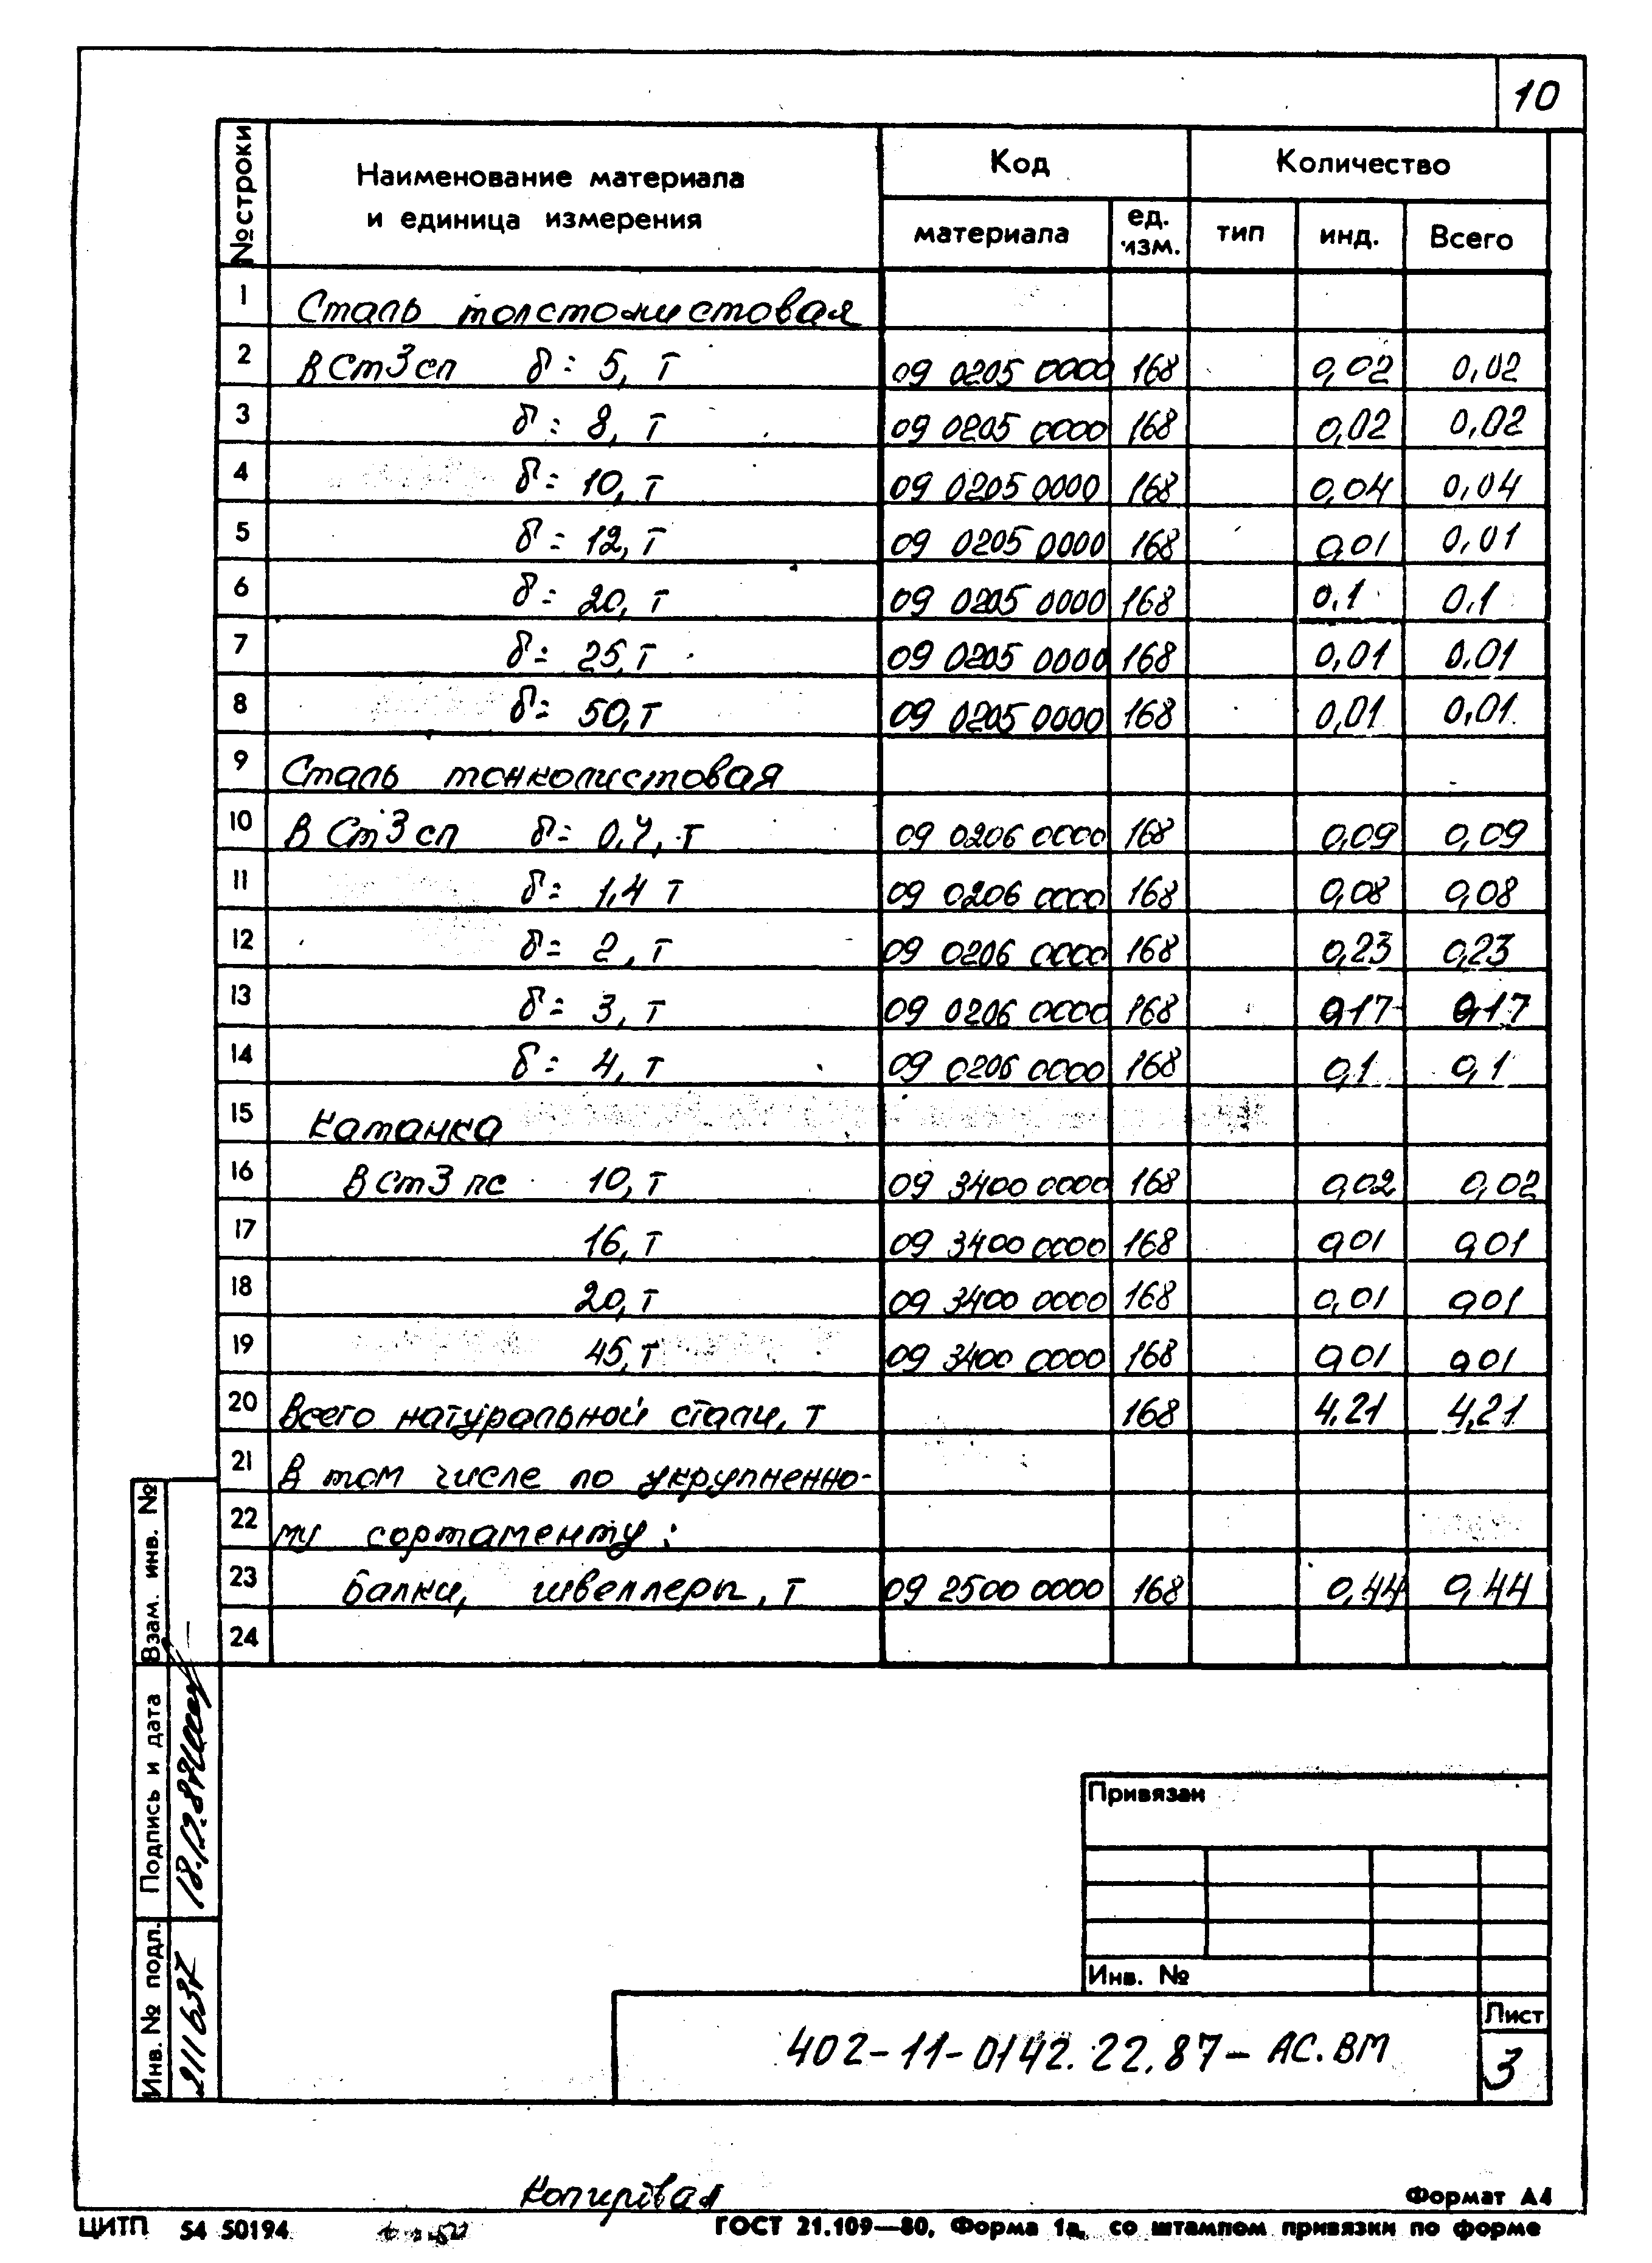 10
№ строки
Наименование материала
и единица измерения
Код
Количество
материала
ед. изм.
тип
инд.
Всего
1 Сталь толстолистовая
2 ВСт3сп δ= 5, т 09 0205 0000 168 0,02 0,02
3 δ= 8, т 09 0205 0000 168 0,02 0,02
4 δ= 10, т 09 0205 0000 168 0,04 0,04
5 δ= 12, т 09 0205 0000 168 0,01 0,01
6 δ= 20, т 09 0205 0000 168 0,1 0,1
7 δ= 25, т 09 0205 0000 168 0,01 0,01
8 δ= 50, т 09 0205 0000 168 0,01 0,01
9 Сталь тонколистовая
10 ВСт3сп δ= 0,7, т 09 0206 0000 168 0,09 0,09
11 δ= 1,4 т 09 0206 0000 168 0,08 0,08
12 δ= 2, т 09 0206 0000 168 0,23 0,23
13 δ= 3, т 09 0206 0000 168 0,17 0,17
14 δ= 4, т 09 0206 0000 168 0,1 0,1
15 Катанка
16 ВСт3пс 10, т 09 3400 0000 168 0,02 0,02
17 16, т 09 3400 0000 168 0,01 0,01
18 20, т 09 3400 0000 168 0,01 0,01
19 45, т 09 3400 0000 168 0,01 0,01
20 Всего натуральной стали, т 168 4,21 4,21
21 В том числе по укрупненно-
22 му сортаменту:
23 Балки, швеллеры, т 09 2500 0000 168 0,44 0,44
24
Взам. инв. №
Подпись и дата
18.12.87
Инв. № подл.
Привязан
Инв. №
402-11-0142.22.87-АС.ВМ
Лист
3
Копировал
Формат А4
ЦИТП 54 50194
ГОСТ 21.109—80, Форма 1а, со штампом привязки по форме